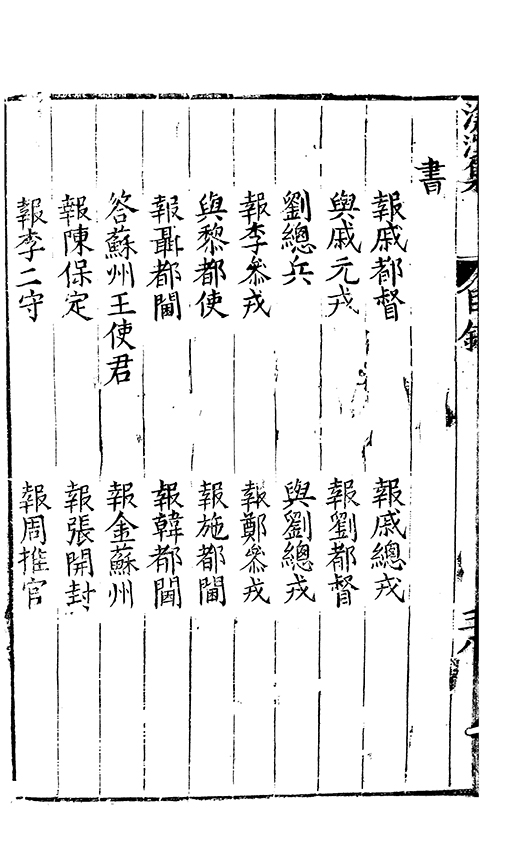 書
報戚都督　報戚總戎
與戚元戎　報劉都督
劉總兵　與劉總戎
報李參戎　報鄭參戎
與黎都使　報施都閫
報聶都閫　報韓都閫
答蘇州王使君　報金蘇州
報陳保定　報張開封
報李二守　報周推官
目錄